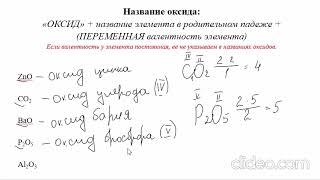 Название оксида:
«ОКСИД» + название элемента в родительном падеже +
(ПЕРЕМЕННАЯ валентность элемента)
Если валентность у элемента постоянная, её не указывают в названиях оксидов.
ZnO – оксид цинка
CO₂ – оксид углерода (IV)
BaO – оксид бария
P₂O₅ – оксид фосфора (V)
Al₂O₃
IV II
CO₂ 2·2/1 = 4
V II
P₂O₅ 2·5/2 = 5
clideo.com